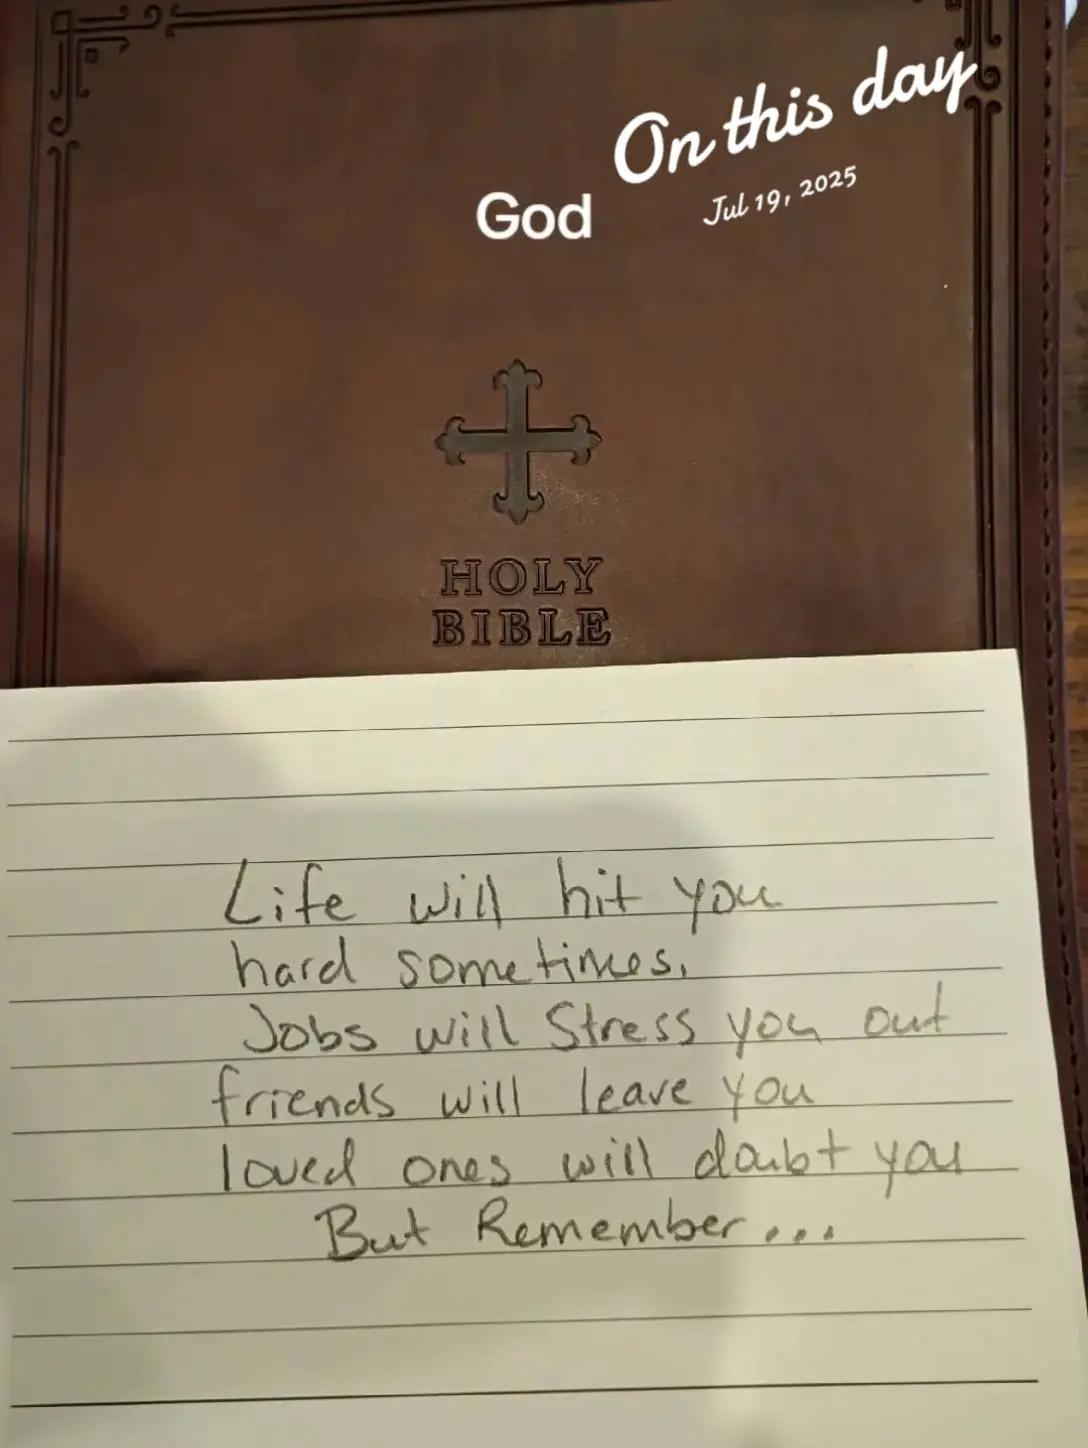 On this day
God
Jul 19, 2025
HOLY
BIBLE
Life will hit you
hard sometimes.
Jobs will Stress you out
friends will leave you
loved ones will doubt you
But Remember...